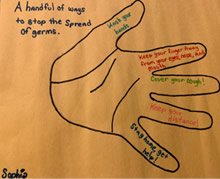 A handful of ways
to stop the Spread
of germs.
Wash your
hands
Keep your finger away
from your eyes, nose, and
mouth
Cover your cough!
Keep your
distance!
Stop home get
help!
Sophia